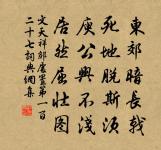 東郊暗長戟
死地脱斯須
庾公興不淺
居然屈壯圖
文天祥鄒處置第一百
二十七詞典網集